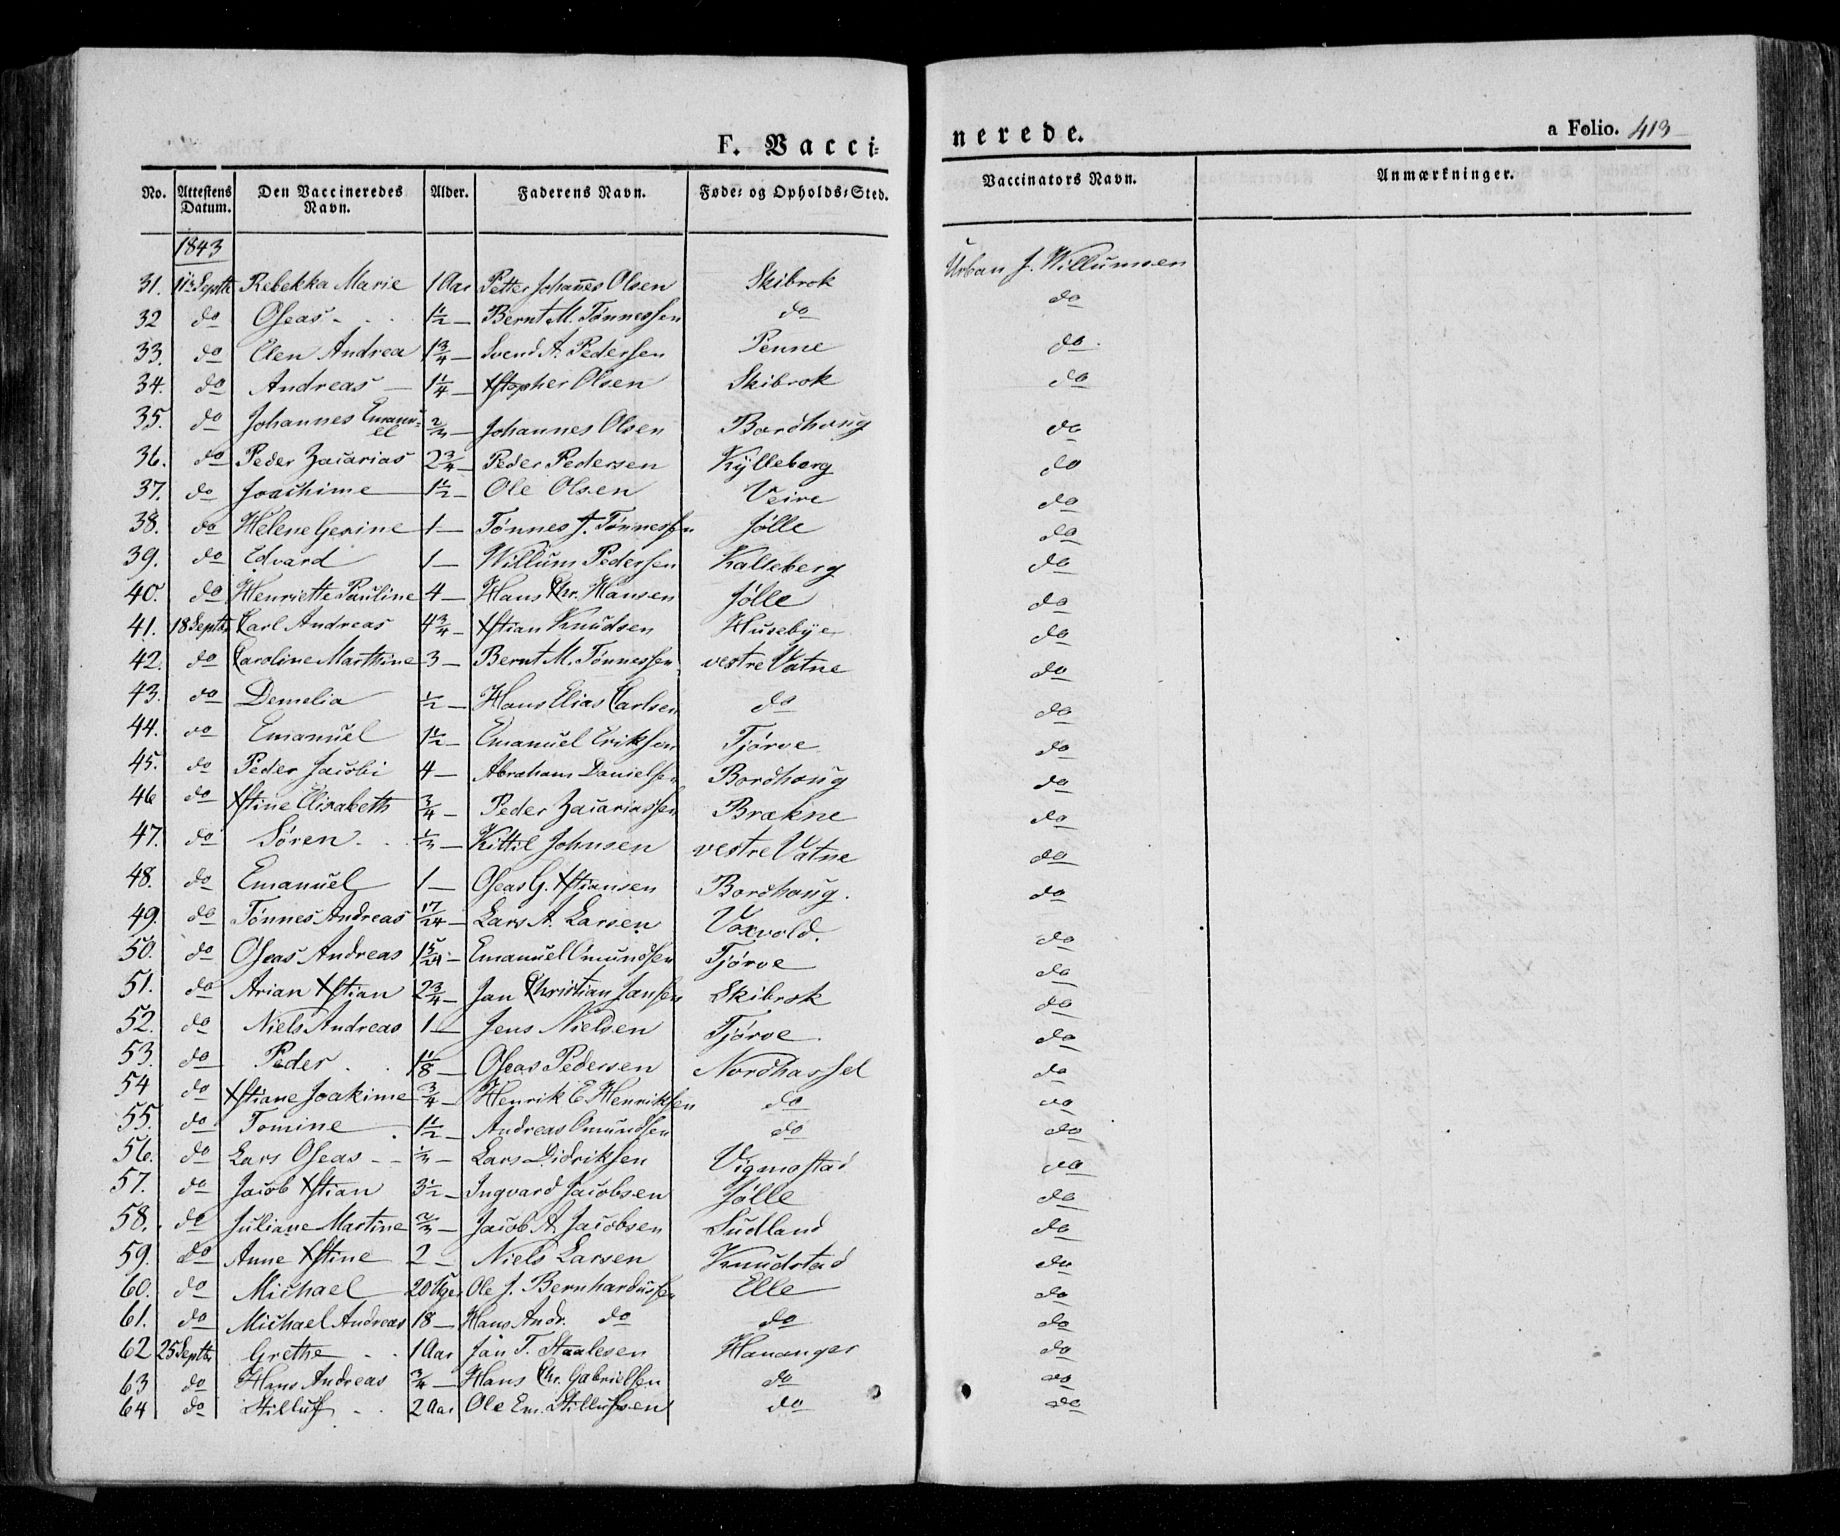 F. Vacci- nerede. a Folio. 413
No. Attestens Datum. Den Vaccineredes Navn. Alder. Faderens Navn. Føde- og Opholds-Sted. Vaccinators Navn. Anmærkninger.
1843
31. 11te Septbr Rebekka Marie 1 Aar Petter Johañes Olsen Skibrok Urban J. Willumsen
32 do Oseas 1½ Bernt M. Tønnessen do do
33. do Elen Andrea 1¾ Svend A. Pedersen Penne do
34. do Andreas 1¼ Xstopher Olsen Skibrok do
35. do Johannes Emanuel 2/3 Johannes Olsen Bordhoug do
36. do Peder Zacarias 2¾ Peder Pedersen Kylleberg do
37. do Joachime 1½ Ole Olsen Veire do
38. do Helene Gerine 1 Tønnes J. Tønnessen Jølle do
39. do Edvard 1 Willum Pedersen Kalleberg do
40. do Henriette Pauline 4 Hans Chr. Hansen Jølle do
41. 18 Septbr Carl Andreas 4¾ Xstian Knudsen Husebye do
42. do Caroline Marthine 3 Bernt M. Tønnessen vestre Vatne do
43. do Demelia ½ Hans Elias Carlsen do do
44. do Emanuel 1½ Emanuel Eriksen Tjørve do
45. do Peder Jacobi 4 Abraham Danielsen Bordhoug do
46 do Xstine Elisabeth ¾ Peder Zacariassen Brækne do
47. do Søren 1/3 Kittil Johnsen vestre Vatne do
48. do Emanuel 1 Oseas G. Xstiansen Bordhoug. do
49. do Tønnes Andreas 17/24 Lars A. Larsen Voxvold. do
50. do Oseas Andreas 1 5/24 Emanuel Omundsen Tjørve do
51. do Arian Xstian 2¾ Jan Christian Jansen Skibrok do
52. do Niels Andreas 1 Jens Nielsen Tjørve do
53. do Peder 1 1/8 Oseas Pedersen Nordhassel do
54 do Xstiane Joakime ¾ Henrik E. Henriksen do do
55. do Tomine 1½ Andreas Omundsen do do
56. do Lars Oseas 1/3 Lars Didriksen Vigmostad do
57. do Jacob Xstian 3½ Ingvard Jacobsen Jølle do
58. do Juliane Martine 2/3 Jacob A. Jacobsen Sudland do
59. do Anne Xstine 2 Niels Larsen Knudstad do
60. do Michael 20 Uger Ole J. Bernhardussen Elle do
61. do Michael Andreas 18 Hans Andr. do do do
62 25 Septbr Grethe 1 Aar Jan T. Staalesen Hananger do
63 do Hans Andreas ¾ Hans Chr. Gabrielsen do do
64 do Stilluf 2 Aar Ole Em. Stillufsen do do